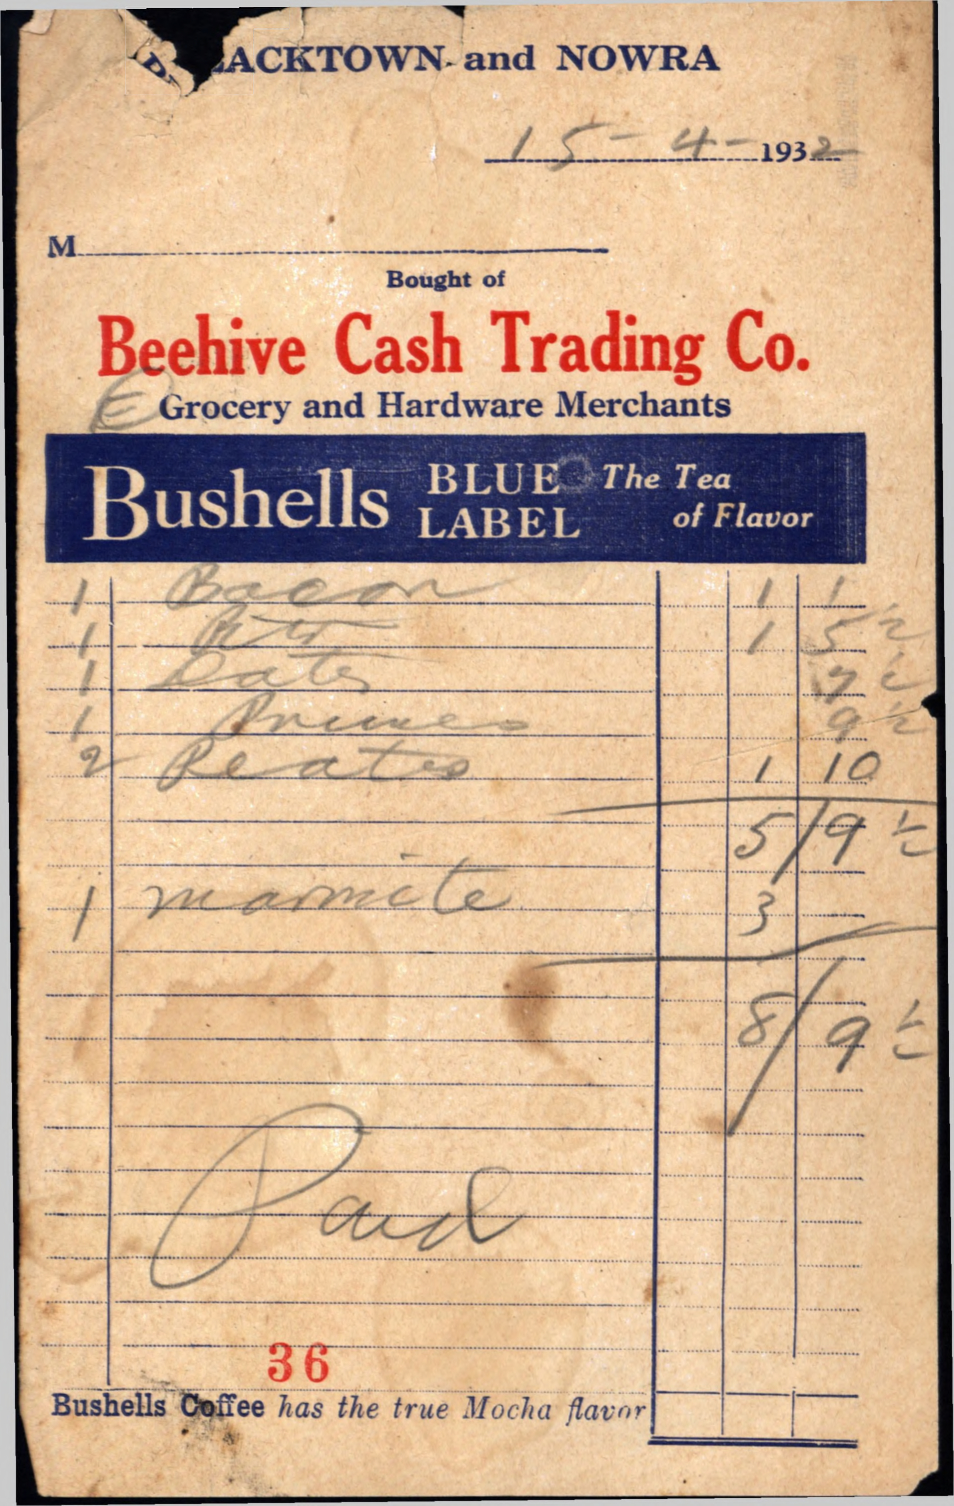 LACKTOWN and NOWRA
15-4-1932
M
Bought of
Beehive Cash Trading Co.
E Grocery and Hardware Merchants
Bushells BLUE LABEL The Tea of Flavor
1 Bacon 1 1
1 1 5 ½
1 Dates 7 ½
1 Prunes 9 ½
2 1 10
5/9 ½
1 marmite 3
8/9 ½
Paid
36
Bushells Coffee has the true Mocha flavor